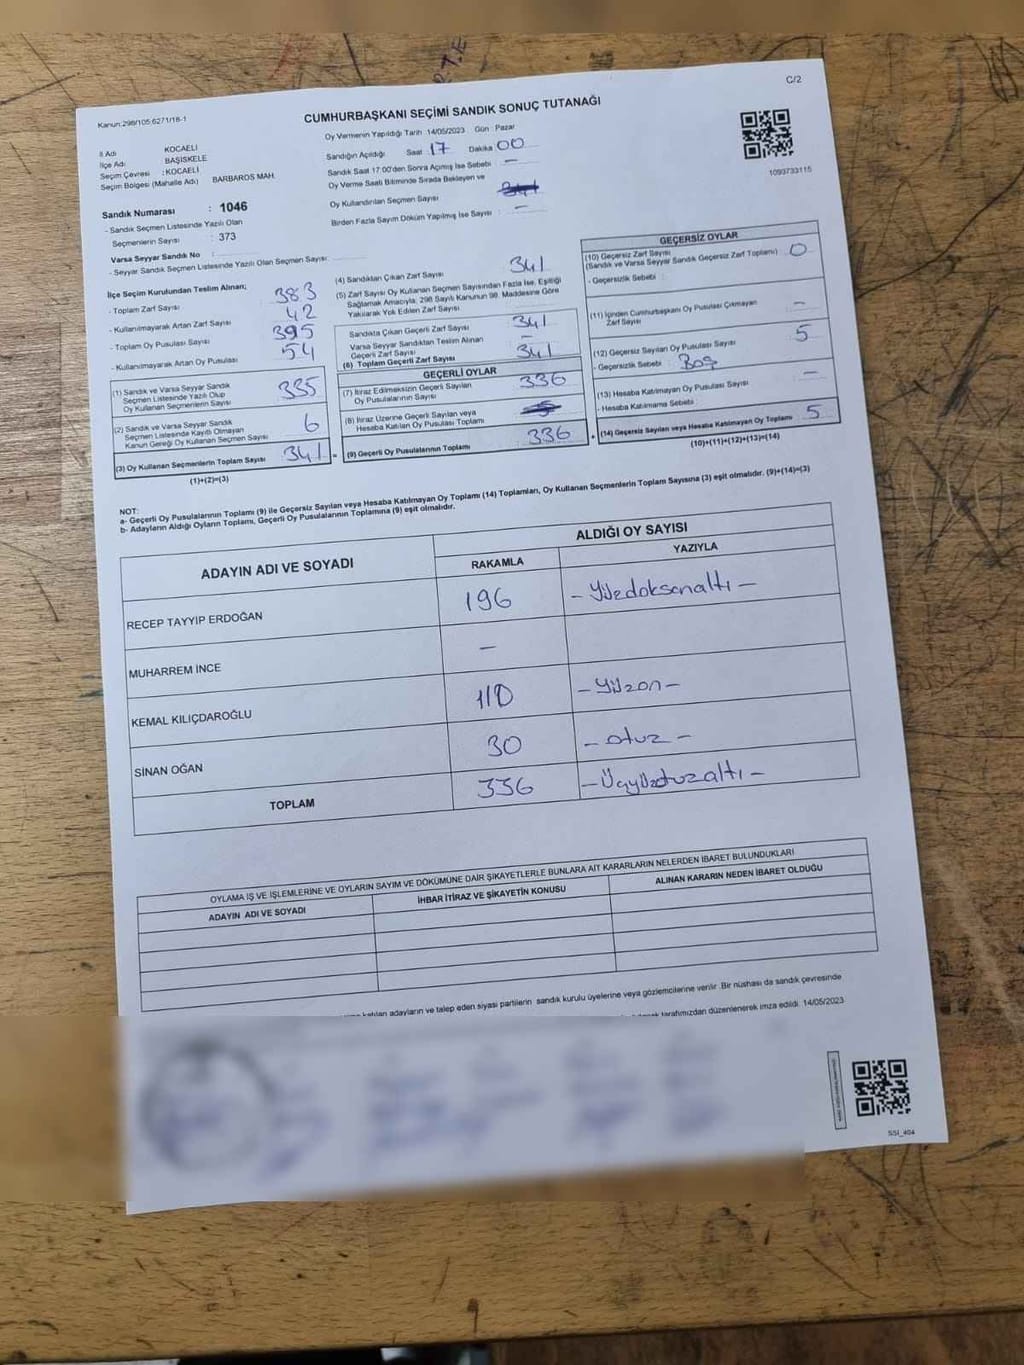 C/2
Kanun:298/105.6271/18-1
CUMHURBAŞKANI SEÇİMİ SANDIK SONUÇ TUTANAĞI
Oy Vermenin Yapıldığı Tarih 14/05/2023 Gün : Pazar
İl Adı KOCAELİ
İlçe Adı BAŞİSKELE
Seçim Çevresi : KOCAELİ
Seçim Bölgesi (Mahalle Adı) BARBAROS MAH.
Sandığın Açıldığı Saat 17 Dakika 00
Sandık Saat 17:00'den Sonra Açımış İse Sebebi : —
Oy Verme Saati Bitiminde Sırada Bekleyen ve
Oy Kullandırılan Seçmen Sayısı
Birden Fazla Sayım Döküm Yapılmış İse Sayısı : —
1093733115
Sandık Numarası : 1046
- Sandık Seçmen Listesinde Yazılı Olan
Seçmenlerin Sayısı : 373
Varsa Seyyar Sandık No :
- Seyyar Sandık Seçmen Listesinde Yazılı Olan Seçmen Sayısı:
İlçe Seçim Kurulundan Teslim Alınan;
- Toplam Zarf Sayısı 383
- Kullanılmayarak Artan Zarf Sayısı 42
- Toplam Oy Pusulası Sayısı 395
- Kullanılmayarak Artan Oy Pusulası 54
(1) Sandık ve Varsa Seyyar Sandık
Seçmen Listesinde Yazılı Olup
Oy Kullanan Seçmenlerin Sayısı 335
(2) Sandık ve Varsa Seyyar Sandık
Seçmen Listesinde Kayıtlı Olmayan
Kanun Gereği Oy Kullanan Seçmen Sayısı 6
(3) Oy Kullanan Seçmenlerin Toplam Sayısı 341
(1)+(2)=(3)
(4) Sandıktan Çıkan Zarf Sayısı 341
(5) Zarf Sayısı Oy Kullanan Seçmen Sayısından Fazla İse, Eşitliği
Sağlamak Amacıyla; 298 Sayılı Kanunun 98. Maddesine Göre
Yakılarak Yok Edilen Zarf Sayısı
Sandıkta Çıkan Geçerli Zarf Sayısı 341
Varsa Seyyar Sandıktan Teslim Alınan
Geçerli Zarf Sayısı —
(6) Toplam Geçerli Zarf Sayısı 341
GEÇERLİ OYLAR
(7) İtiraz Edilmeksizin Geçerli Sayılan
Oy Pusulalarının Sayısı 336
(8) İtiraz Üzerine Geçerli Sayılan veya
Hesaba Katılan Oy Pusulası Toplamı
(9) Geçerli Oy Pusulalarının Toplamı 336
GEÇERSİZ OYLAR
(10) Geçersiz Zarf Sayısı
(Sandık ve Varsa Seyyar Sandık Geçersiz Zarf Toplamı) 0
- Geçersizlik Sebebi :
(11) İçinden Cumhurbaşkanı Oy Pusulası Çıkmayan
Zarf Sayısı —
(12) Geçersiz Sayılan Oy Pusulası Sayısı 5
- Geçersizlik Sebebi : Boş
(13) Hesaba Katılmayan Oy Pusulası Sayısı —
- Hesaba Katılmama Sebebi :
(14) Geçersiz Sayılan veya Hesaba Katılmayan Oy Toplamı 5
(10)+(11)+(12)+(13)=(14)
NOT:
a- Geçerli Oy Pusulalarının Toplamı (9) ile Geçersiz Sayılan veya Hesaba Katılmayan Oy Toplamı (14) Toplamları, Oy Kullanan Seçmenlerin Toplam Sayısına (3) eşit olmalıdır. (9)+(14)=(3)
b- Adayların Aldığı Oyların Toplamı, Geçerli Oy Pusulalarının Toplamına (9) eşit olmalıdır.
ADAYIN ADI VE SOYADI ALDIĞI OY SAYISI
RAKAMLA YAZIYLA
RECEP TAYYIP ERDOĞAN 196 - Yüzdoksanaltı -
MUHARREM İNCE —
KEMAL KILIÇDAROĞLU 110 - Yüzon -
SİNAN OĞAN 30 - otuz -
TOPLAM 336 - Üçyüzotuzaltı -
OYLAMA İŞ VE İŞLEMLERİNE VE OYLARIN SAYIM VE DÖKÜMÜNE DAİR ŞİKAYETLERLE BUNLARA AİT KARARLARIN NELERDEN İBARET BULUNDUKLARI
ADAYIN ADI VE SOYADI İHBAR İTİRAZ VE ŞİKAYETİN KONUSU ALINAN KARARIN NEDEN İBARET OLDUĞU
katılan adayların ve talep eden siyasi partilerin sandık kurulu üyelerine veya gözlemcilerine verilir. Bir nüshası da sandık çevresinde
tarafımızdan düzenlenerek imza edildi. 14/05/2023
SSI_404